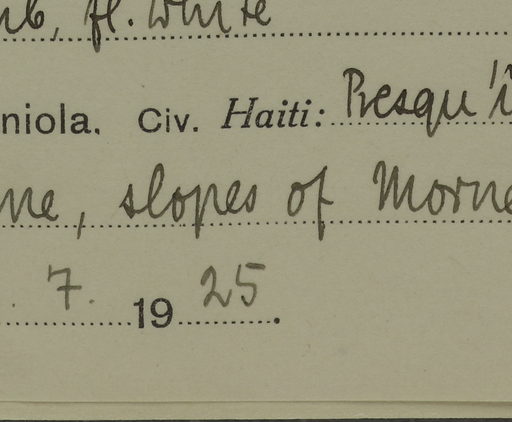 fl. white
niola. Civ. Haiti: Presqu'î
ne, slopes of Morne
7. 1925.